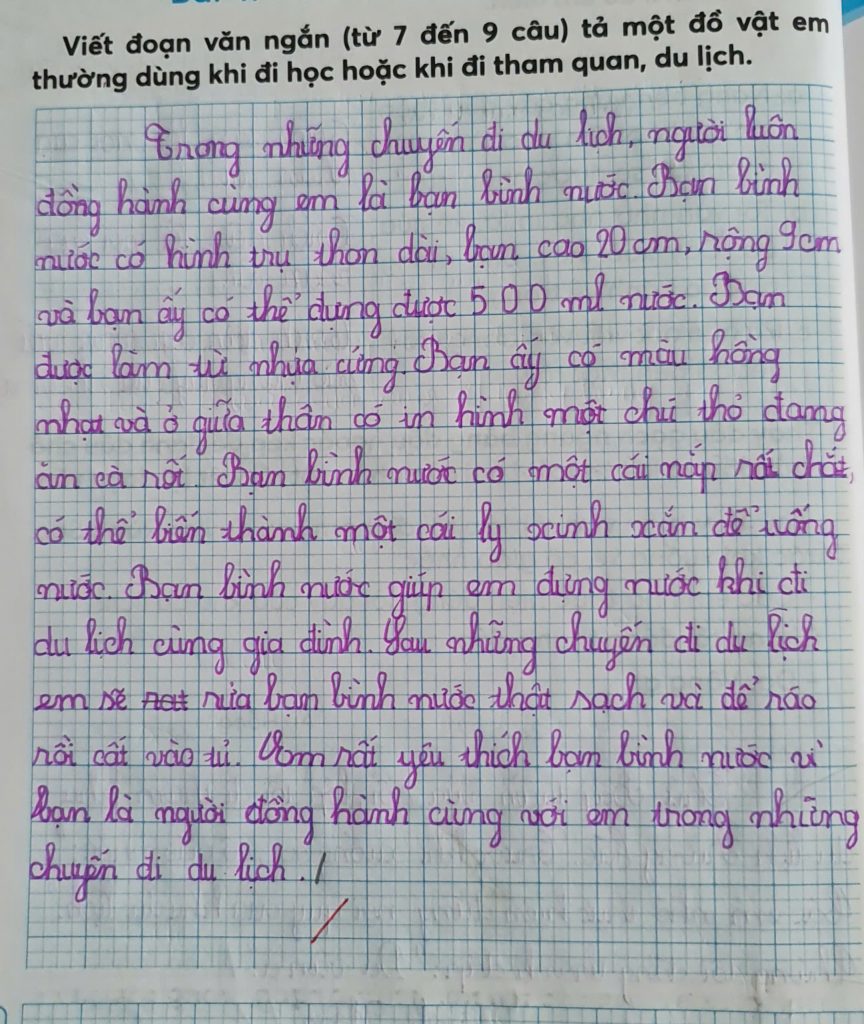 Viết đoạn văn ngắn (từ 7 đến 9 câu) tả một đồ vật em
thường dùng khi đi học hoặc khi đi tham quan, du lịch.
Trong những chuyến đi du lịch, người luôn
đồng hành cùng em là bạn bình nước. Bạn bình
nước có hình trụ thon dài, bạn cao 20 cm, rộng 9cm
và bạn ấy có thể đựng được 500 ml nước. Bạn
được làm từ nhựa cứng. Bạn ấy có màu hồng
nhạt và ở giữa thân có in hình một chú thỏ đang
ăn cà rốt. Bạn bình nước có một cái nắp rất chắt,
có thể biến thành một cái ly xinh xắn để uống
nước. Bạn bình nước giúp em đựng nước khi đi
du lịch cùng gia đình. Sau những chuyến đi du lịch
em sẽ rửa bạn bình nước thật sạch và để ráo
rồi cất vào tủ. Em rất yêu thích bạn bình nước vì
bạn là người đồng hành cùng với em trong những
chuyến đi du lịch.